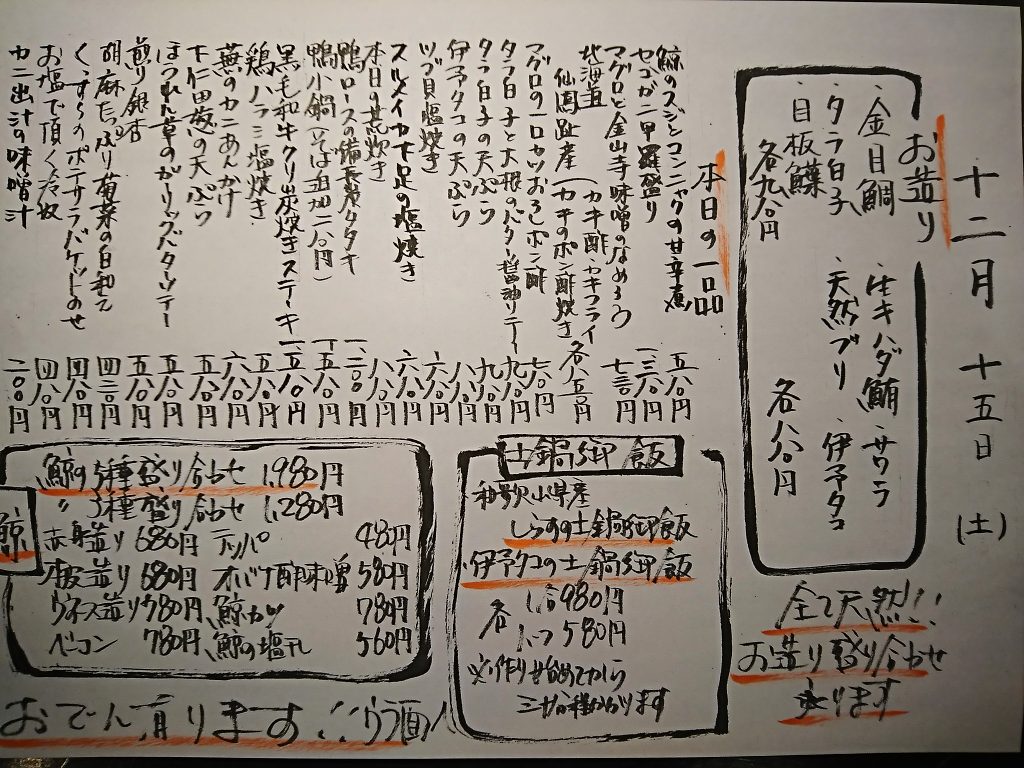 十二月十五日(土)
お造り
・金目鯛 ・生キハダ鮪 ・サワラ
・タラ白子 ・天然ブリ ・伊予タコ
・目板鰈
各九八〇円 各八八〇円
全て天然!!
お造り盛り合わせ
有ります
本日の一品
鯨のスジとコンニャクの甘辛煮 五八〇円
セコガニ甲羅盛り 一三八〇円
マグロと金山寺味噌のなめろう 七三〇円
北海道 (カキ酢・カキフライ
仙鳳趾産 (カキのポン酢焼き 各八五〇円
マグロの一口カツおろしポン酢 七八〇円
タラ白子と大根のバター醤油ソテー 九八〇円
タラ白子の天ぷら 九八〇円
伊予タコの天ぷら 八八〇円
ツブ貝塩焼き 六八〇円
スルメイカ下足の塩焼き 六八〇円
本日の荒炊き 八八〇円
鴨ロースの備長炭タタキ 一二〇〇円
鴨小鍋(そば追加二八〇円) 一五八〇円
黒毛和牛クリ炭焼きステーキ 一五八〇円
鶏ハラミ塩焼き 五八〇円
蕪のカニあんかけ 六八〇円
下仁田葱の天ぷら 五八〇円
ほうれん草のガーリックバターソテー 五八〇円
煎り銀杏 五八〇円
胡麻たっぷり菊菜の白和え 四三〇円
くずらのポテサラバケットのせ 四八〇円
お塩で頂く冷奴 四八〇円
カニ出汁の味噌汁 二〇〇円
土鍋御飯
和歌山県産
しらすの土鍋御飯
伊予タコの土鍋御飯
各 1合980円
1.5 1,580円
※作り始めてから
三十分程かかります
鯨
鯨の5種盛り合わせ 1,980円
〃 3種盛り合わせ 1,280円
赤身造り 680円 テッパ 480円
本皮造り 680円 オバケ酢味噌 580円
ウネス造り 980円 鯨カツ 780円
ベーコン 780円 鯨の塩干 560円
おでん有ります!!(ウラ面)